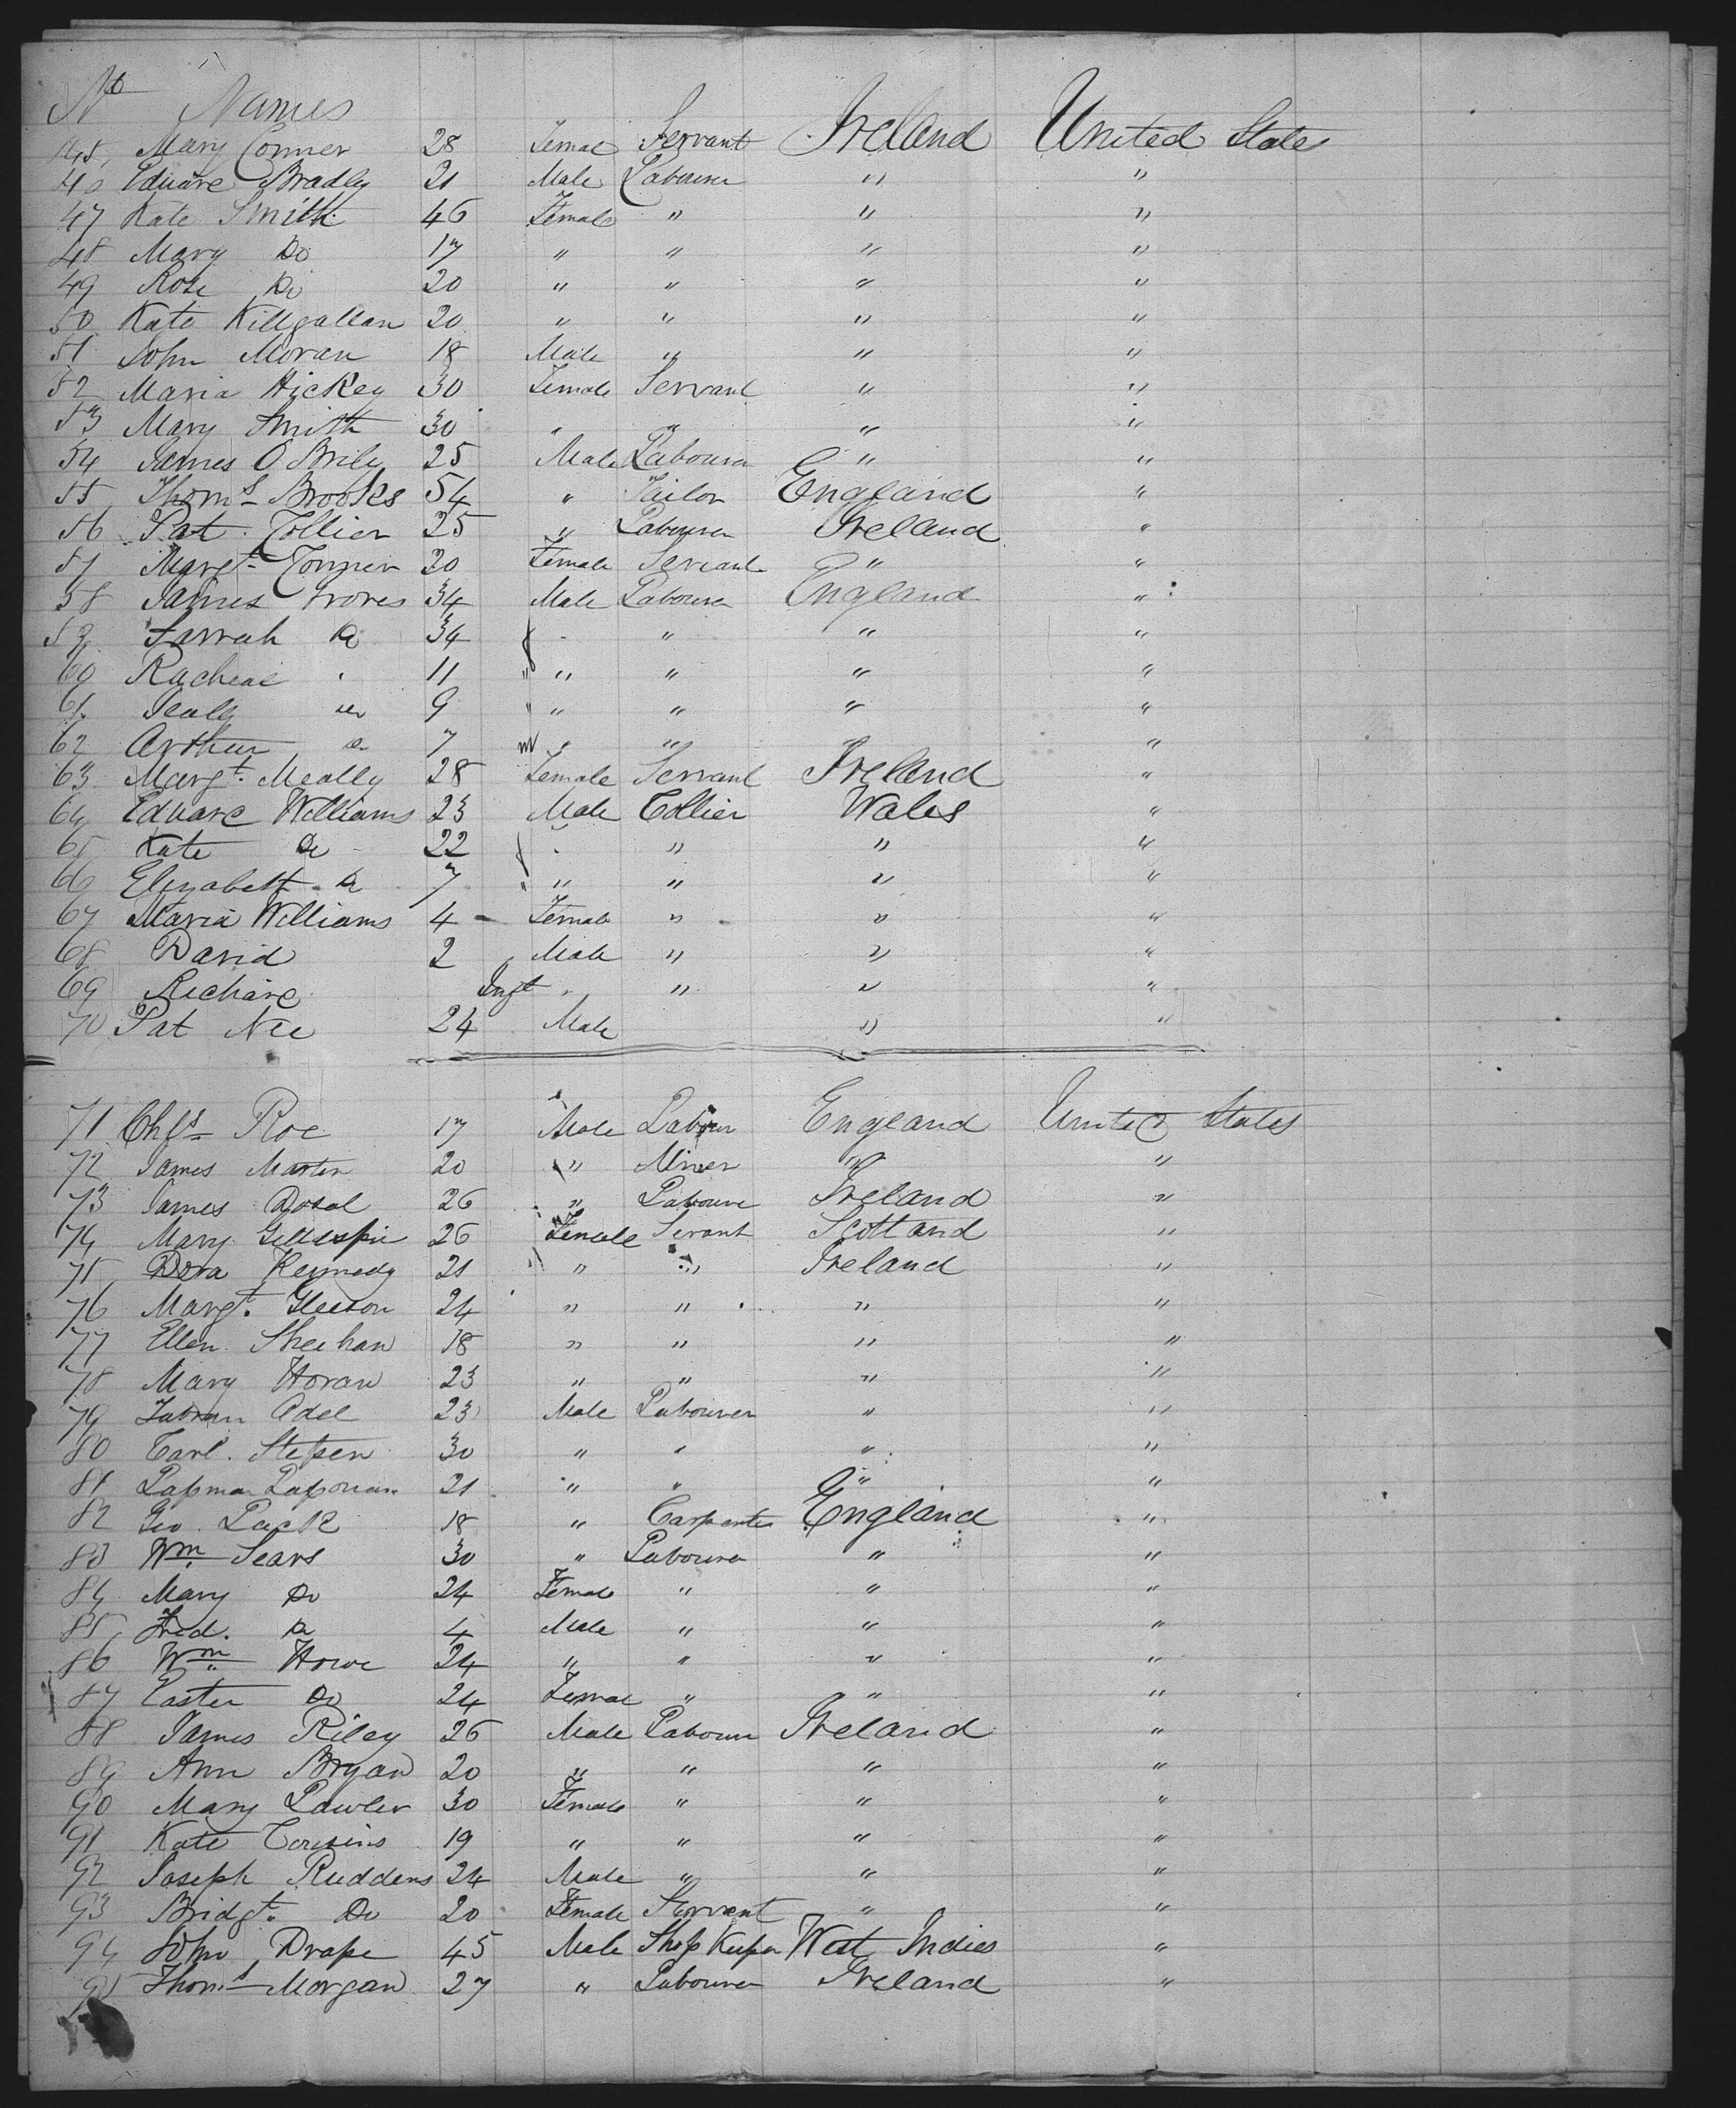 No Names
45 Mary Conner 28 Female Servant Ireland United States
46 Edward Bradly 21 Male Labourer " "
47 Kate Smith 46 Female " " "
48 Mary Do 17 " " " "
49 Rose Do 20 " " " "
50 Kate Killgallan 20 " " " "
51 John Moran 18 Male " " "
52 Maria Hickey 30 Female Servant " "
53 Mary Smith 30 " " " "
54 James O. 25 Male Labourer " "
55 Thoms Brooks 54 " Tailor England "
56 Pat Collier 25 " Labourer Ireland "
57 Margt Conner 30 Female Servant " "
58 James 34 Male Labourer England "
59 Sarrah Do 34 f " " "
60 Racheal " 11 " " " " "
61 Do 9 " " " " "
62 Arthur Do 7 m " " " "
63 Margt. Meally 28 Female Servant Ireland "
64 Edward Williams 23 Male Collier Wales "
65 Kate Do 22 f " " "
66 Elizabeth Do 7 " " " " "
67 Maria Williams 4 - Female " " "
68 David 2 Male " " "
69 Richard Inft " " "
70 Pat Nee 24 Male " "
71 Chls Roe 17 Male Labour England United States
72 James Martin 20 " Miner " "
73 James 26 " Laboure Ireland "
74 Mary Gillespie 26 Female Servant Scotland "
75 Dora Kennedy 21 " " Ireland "
76 Margt. Gleeson 24 " " " "
77 Ellen Sheehan 18 " " " "
78 Mary Horan 23 " " " "
79 Adel 23 Male Labourer " "
80 Carl. Stepen 30 " " " "
81 21 " " " "
82 Geo. Pack 18 " Carpenter England "
83 Wm Sears 30 " Labourer " "
84 Mary Do 24 Female " " "
85 Fred. Do 4 Male " " "
86 Wm Howe 24 " " " "
87 Easter Do 24 Female " " "
88 James Riley 26 Male Labour Ireland "
89 Ann Bryan 20 " " " "
90 Mary Lawler 30 Female " " "
91 Kate Cousins 19 " " " "
92 Joseph Ruddens 24 Male " " "
93 Bridgt. Do 20 Female Servant " "
94 John Drape 45 Male Shop Keeper West Indies "
95 Thoms Morgan 27 " Labourer Ireland "